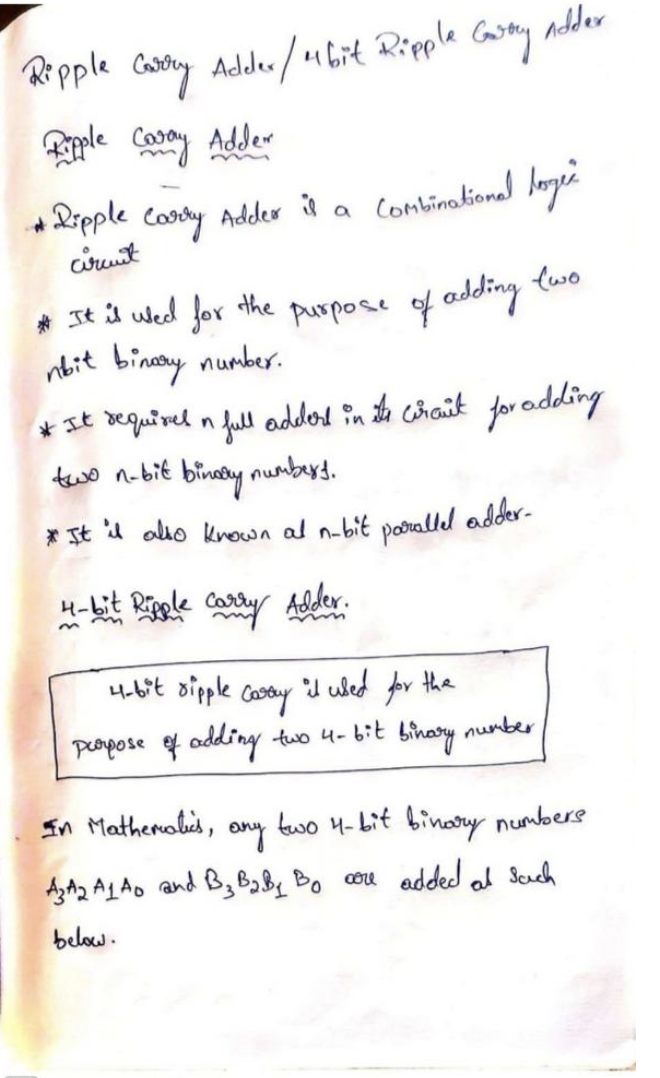 Ripple Carry Adder/4bit Ripple Carry Adder
Ripple Carry Adder
* Ripple Carry Adder is a Combinational Logic
circuit
* It is used for the purpose of adding two
nbit binary number.
* It requires n full adders in its circuit for adding
two n-bit binary numbers.
* It is also known as n-bit parallel adder-
4-bit Ripple Carry Adder.
4-bit ripple carry is used for the
purpose of adding two 4-bit binary number
In Mathematics, any two 4-bit binary numbers
A₃A₂A₁A₀ and B₃B₂B₁B₀ are added as such
below.